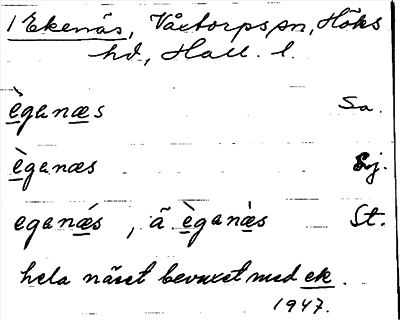 1 Ekenäs, Våxtorps sn, Höks
hd, Hall. l.
ègenæs Sa.
ègenæs Lj.
egenǽs, ä. ègenæ̀s St.
hela näset bevuxet med ek.
1947.